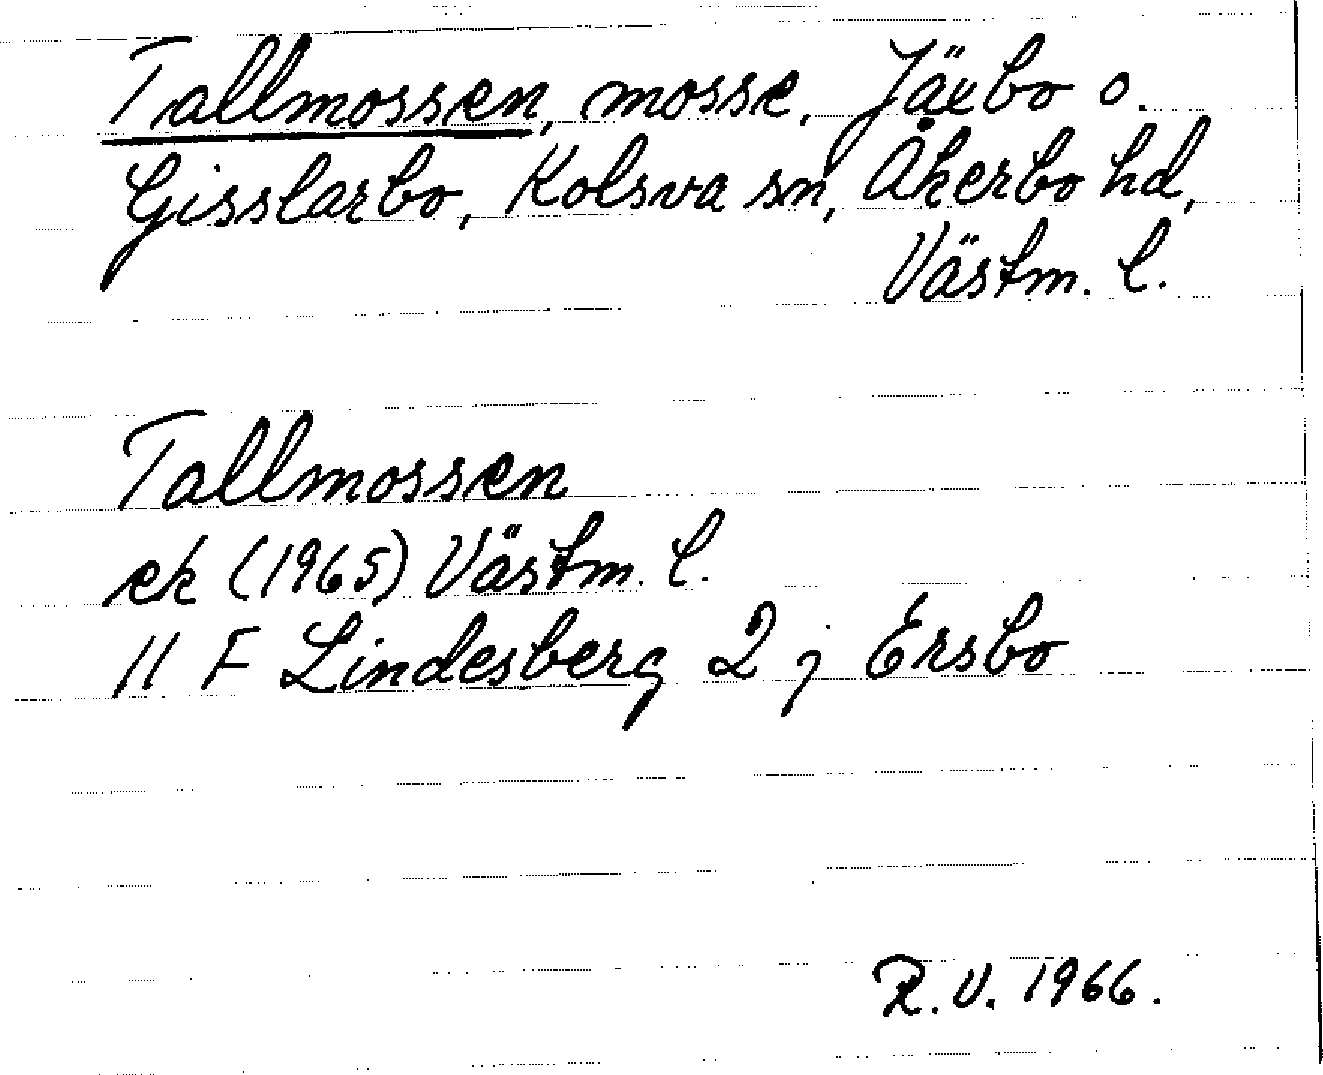 Tallmossen, mosse, Järbo o.
Gisslarbo, Kolsva sn, Åkerbo hd,
Västm. l.
Tallmossen
ek (1965) Västm. l.
11 F Lindesberg 2 j Ersbo
R. V. 1966.